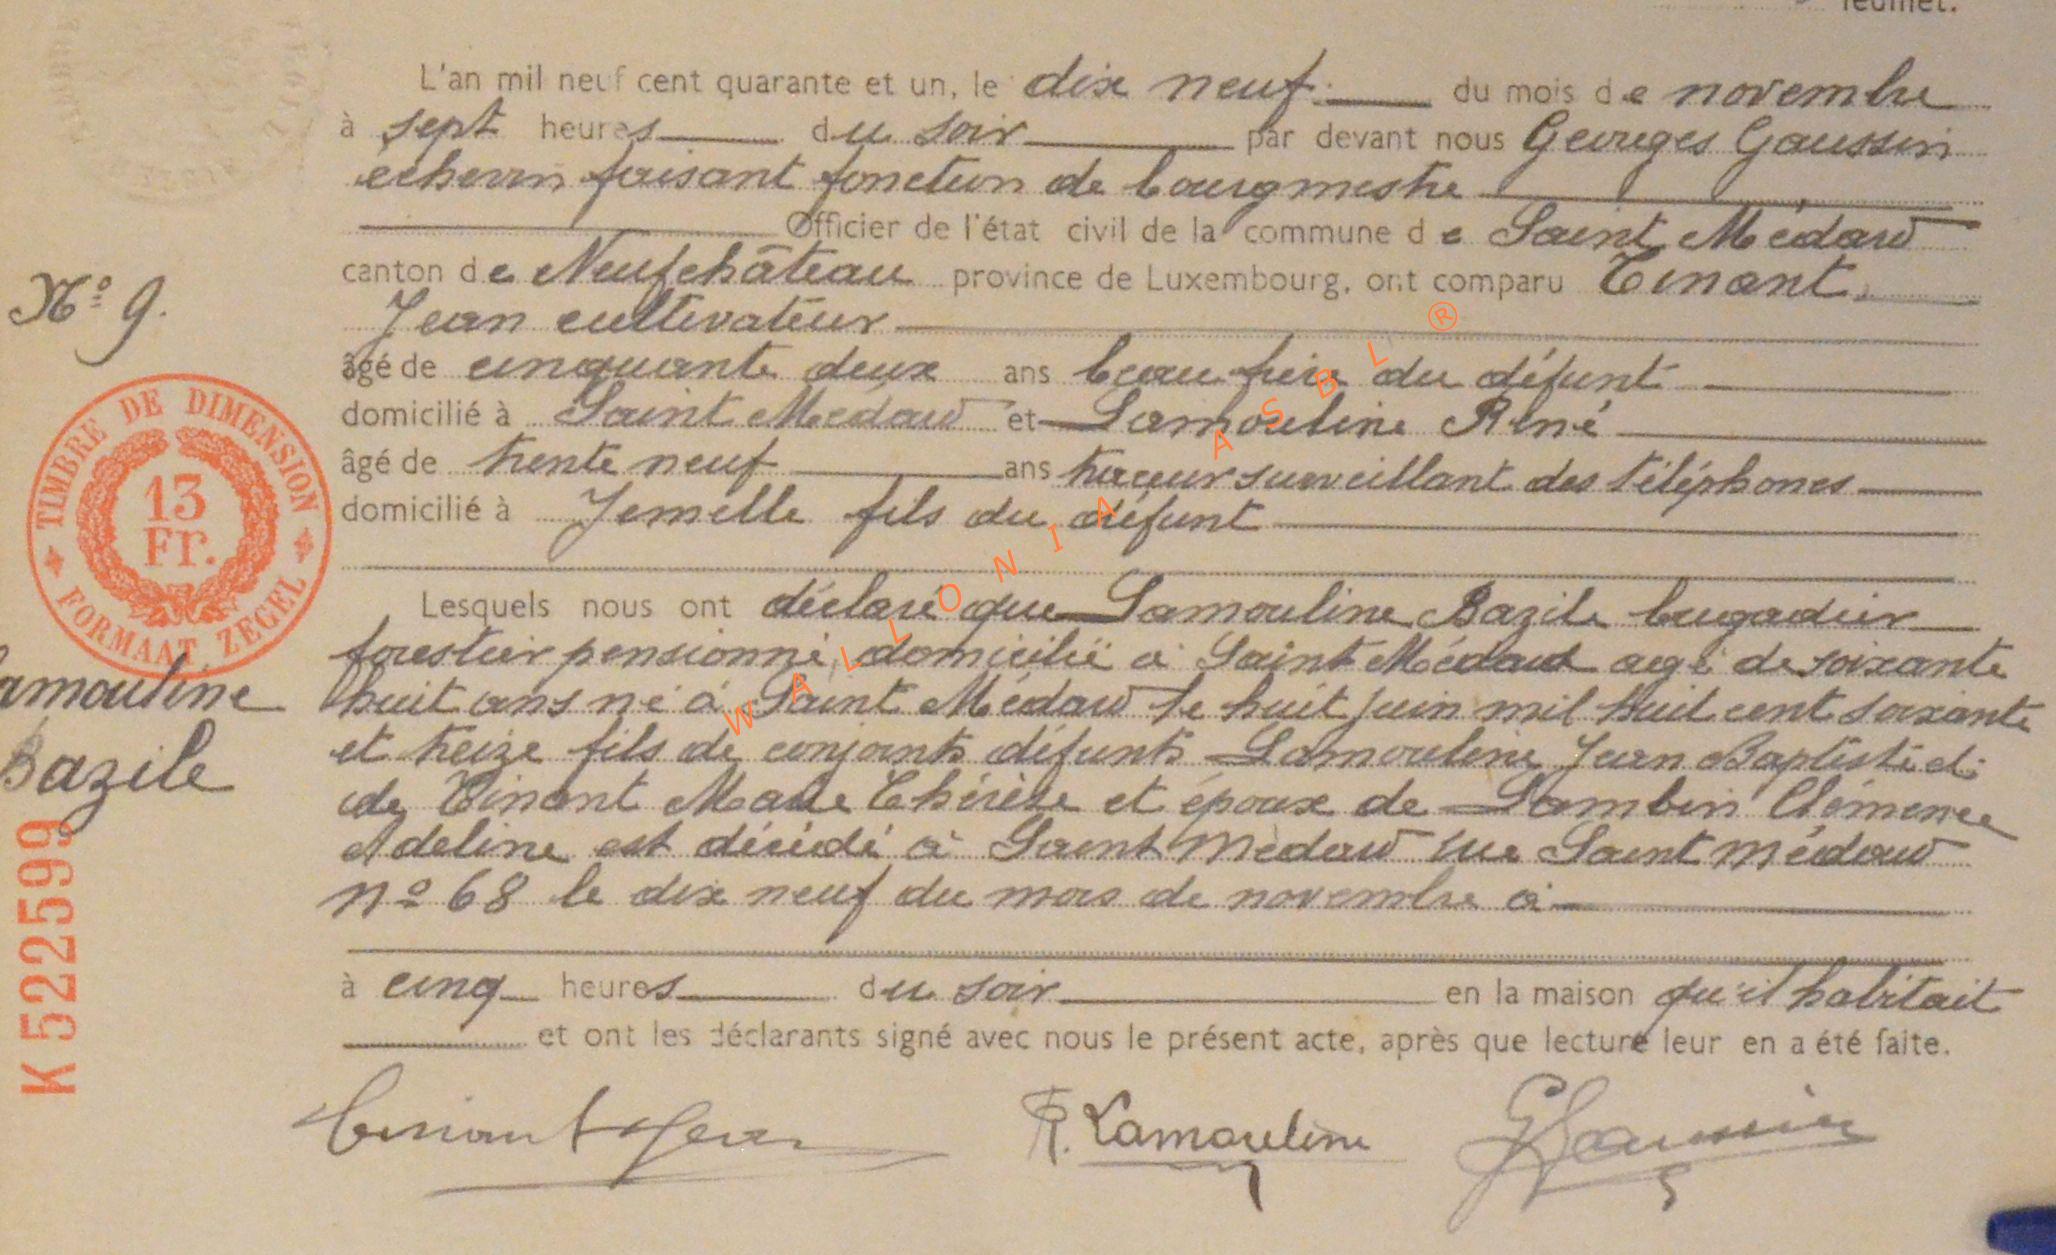 feuillet.
L'an mil neuf cent quarante et un, le dix neuf du mois de novembre
à sept heures du soir par devant nous Georges Gaussin
échevin faisant fonction de bourgmestre
Officier de l'état civil de la commune de Saint Médard
canton de Neufchâteau province de Luxembourg, ont comparu Tinant
Jean cultivateur
âgé de cinquante deux ans beau frère du défunt
domicilié à Saint Médard et Lamouline René
âgé de trente neuf ans traceur surveillant des téléphones
domicilié à Jemelle fils du défunt
Lesquels nous ont déclaré que Lamouline Bazile brigadier
forestier pensionné, domicilié à Saint Médard agé de soixante
huit ans né à Saint Médard le huit juin mil huit cent soixante
et treize fils de conjoints défunts Lamouline Jean Baptiste et
de Tinant Marie Thérèse et époux de Lambin Clémence
Adeline est décédé à Saint Médard rue Saint Médard
no 68 le dix neuf du mois de novembre à
à cinq heures du soir en la maison qu'il habitait
et ont les déclarants signé avec nous le présent acte, après que lecture leur en a été faite.
Tinant Jean R. Lamouline G Gaussin
No 9.
TIMBRE DE DIMENSION
13
Fr.
FORMAAT ZEGEL
Lamouline
Bazile
K 522599
WALLONIA ASBL ®